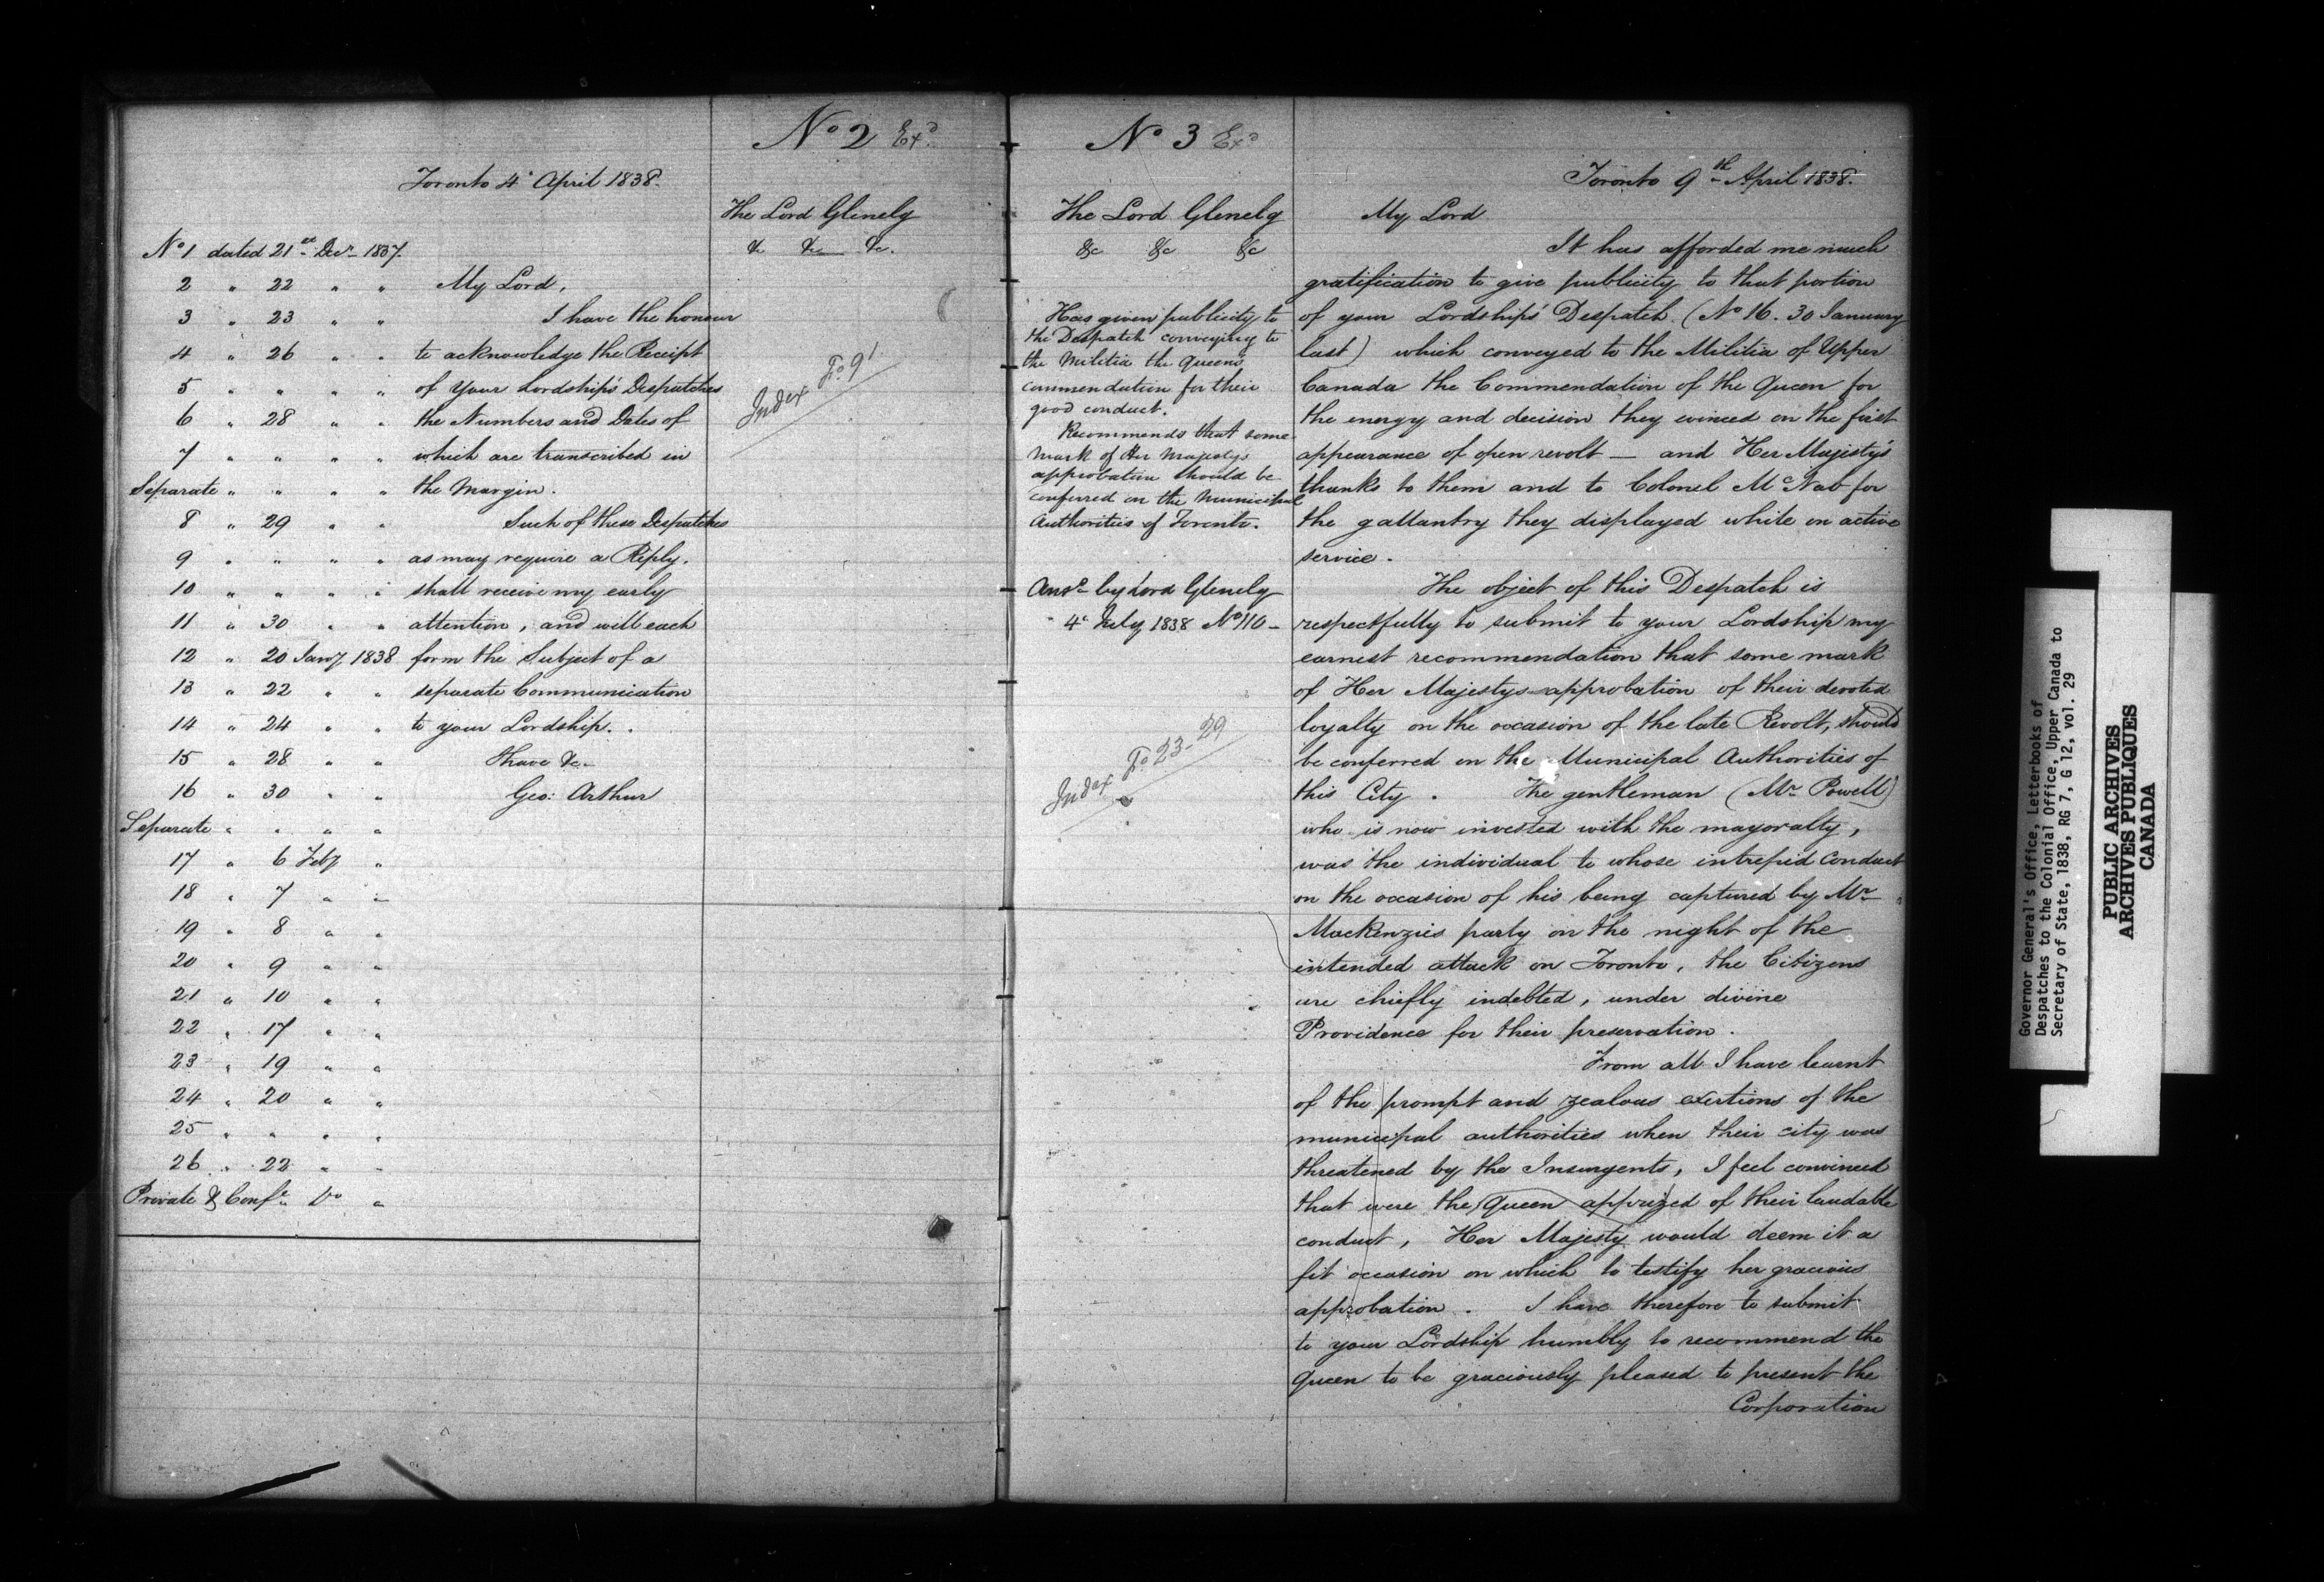 No 2 Exd
Toronto 4th April 1838.
The Lord Glenelg
&c &c &c.
No 1 dated 21st Decr 1837.
2 " 22 " "
3 " 23 " "
4 " 26 " "
5 " " " "
6 " 28 " "
7 " " " "
Separate " " " "
8 " 29 " "
9 " " " "
10 " " " "
11 " 30 " "
12 " 20 Jany 1838
13 " 22 " "
14 " 24 " "
15 " 28 " "
16 " 30 " "
Separate " " " "
17 " 6 Feby "
18 " 7 " "
19 " 8 " "
20 " 9 " "
21 " 10 " "
22 " 17 " "
23 " 19 " "
24 " 20 " "
25 " " " "
26 " 22 " "
Private & Confl Do "
My Lord,
I have the honour
to acknowledge the Receipt
of Your Lordship's Despatches
the Numbers and Dates of
which are transcribed in
the Margin.
Such of these Despatches
as may require a Reply,
shall receive my early
attention, and will each
form the Subject of a
separate Communication
to your Lordship.
I have &c
Geo: Arthur
Index Fo 91
No 3 Exd
The Lord Glenelg
&c &c &c
Has given publicity to
the Despatch conveying to
the Militia the Queens
commendation for their
good conduct.
Recommends that some
mark of Her Majesty's
approbation should be
conferred on the Municipal
Authorities of Toronto.
Ansd by Lord Glenelg
4th July 1838 No 110
Index Fo 23-29
Toronto 9th April 1838.
My Lord
It has afforded me much
gratification to give publicity to that portion
of your Lordship's Despatch (No 16. 30 January
last) which conveyed to the Militia of Upper
Canada the Commendation of the Queen for
the energy and decision they evinced on the first
appearance of open revolt — and Her Majesty's
thanks to them and to Colonel McNab for
the gallantry they displayed while on active
service.
The object of this Despatch is
respectfully to submit to your Lordship my
earnest recommendation that some mark
of Her Majestys approbation of their devoted
loyalty on the occasion of the late Revolt, should
be conferred on the Municipal Authorities of
this City. The gentleman (Mr Powell)
who is now invested with the mayoralty,
was the individual to whose intrepid Conduct
on the occasion of his being captured by Mr
MacKenzies party on the night of the
intended attack on Toronto, the Citizens
are chiefly indebted, under divine
Providence for their preservation.
From all I have learnt
of the prompt and zealous exertions of the
municipal authorities when their city was
threatened by the Insurgents, I feel convinced
that were the Queen apprized of their laudable
conduct, Her Majesty would deem it a
fit occasion on which to testify her gracious
approbation. I have therefore to submit
to your Lordship humbly to recommend the
Queen to be graciously pleased to present the
Corporation
Governor General's Office, Letterbooks of
Despatches to the Colonial Office, Upper Canada to
Secretary of State, 1838, RG 7, G 12, vol. 29
PUBLIC ARCHIVES
ARCHIVES PUBLIQUES
CANADA